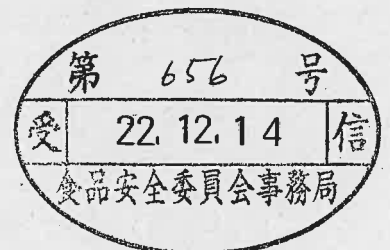 第 656 号
受 22.12.14 信
食品安全委員会事務局